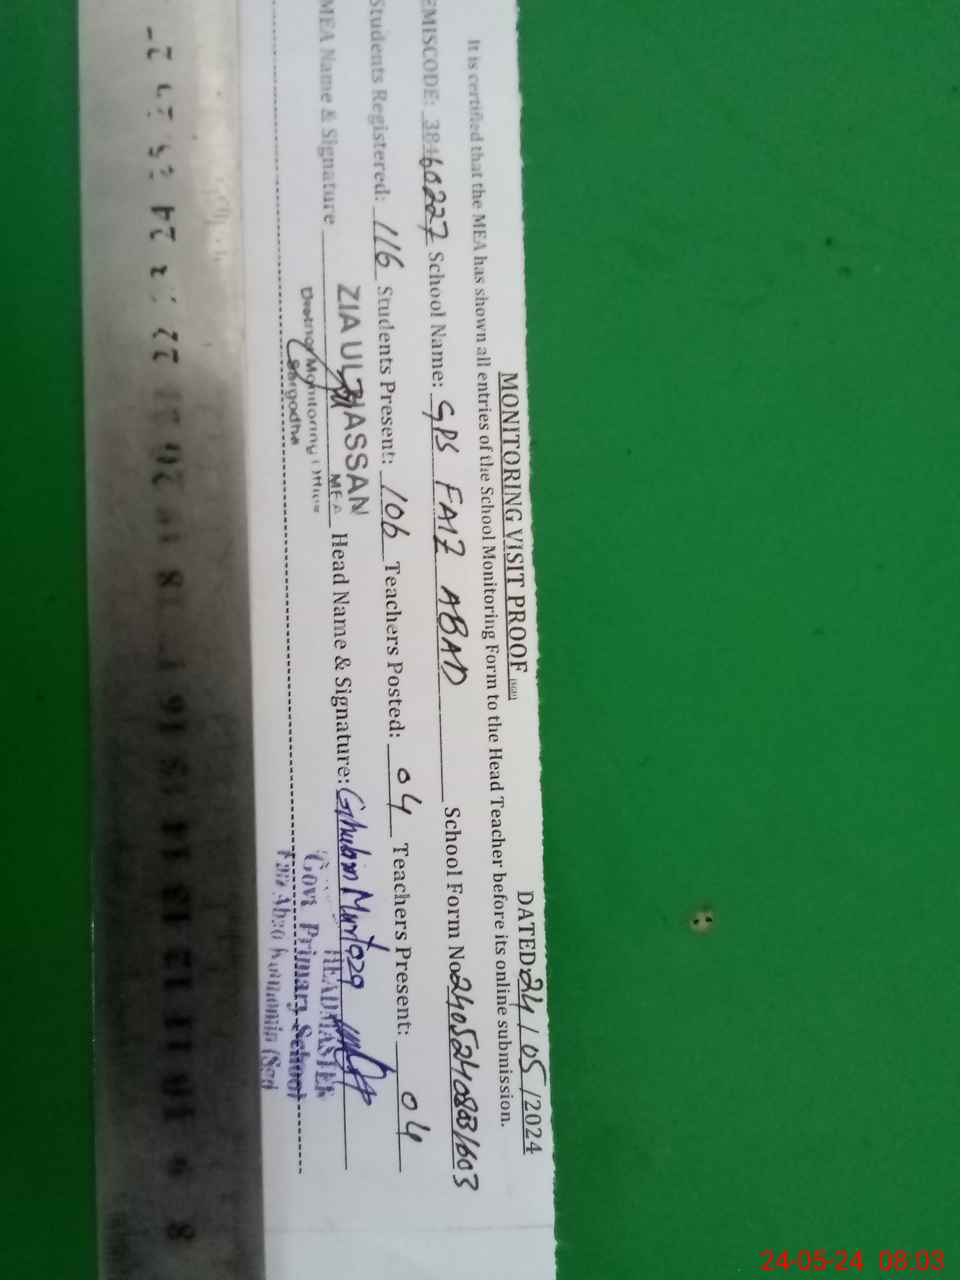 MONITORING VISIT PROOF
DATED 24/05/2024
It is certified that the MEA has shown all entries of the School Monitoring Form to the Head Teacher before its online submission.
EMISCODE: 38460227 School Name: GPS FAIZ ABAD School Form No
Students Registered: 116 Students Present: 106 Teachers Posted: 04 Teachers Present: 04
MEA Name & Signature ZIA UL HASSAN MEA Head Name & Signature: Ghulam Murtaza
District Monitoring Officer
Sargodha
HEADMASTER
Govt Primary School
24-05-24 08:03